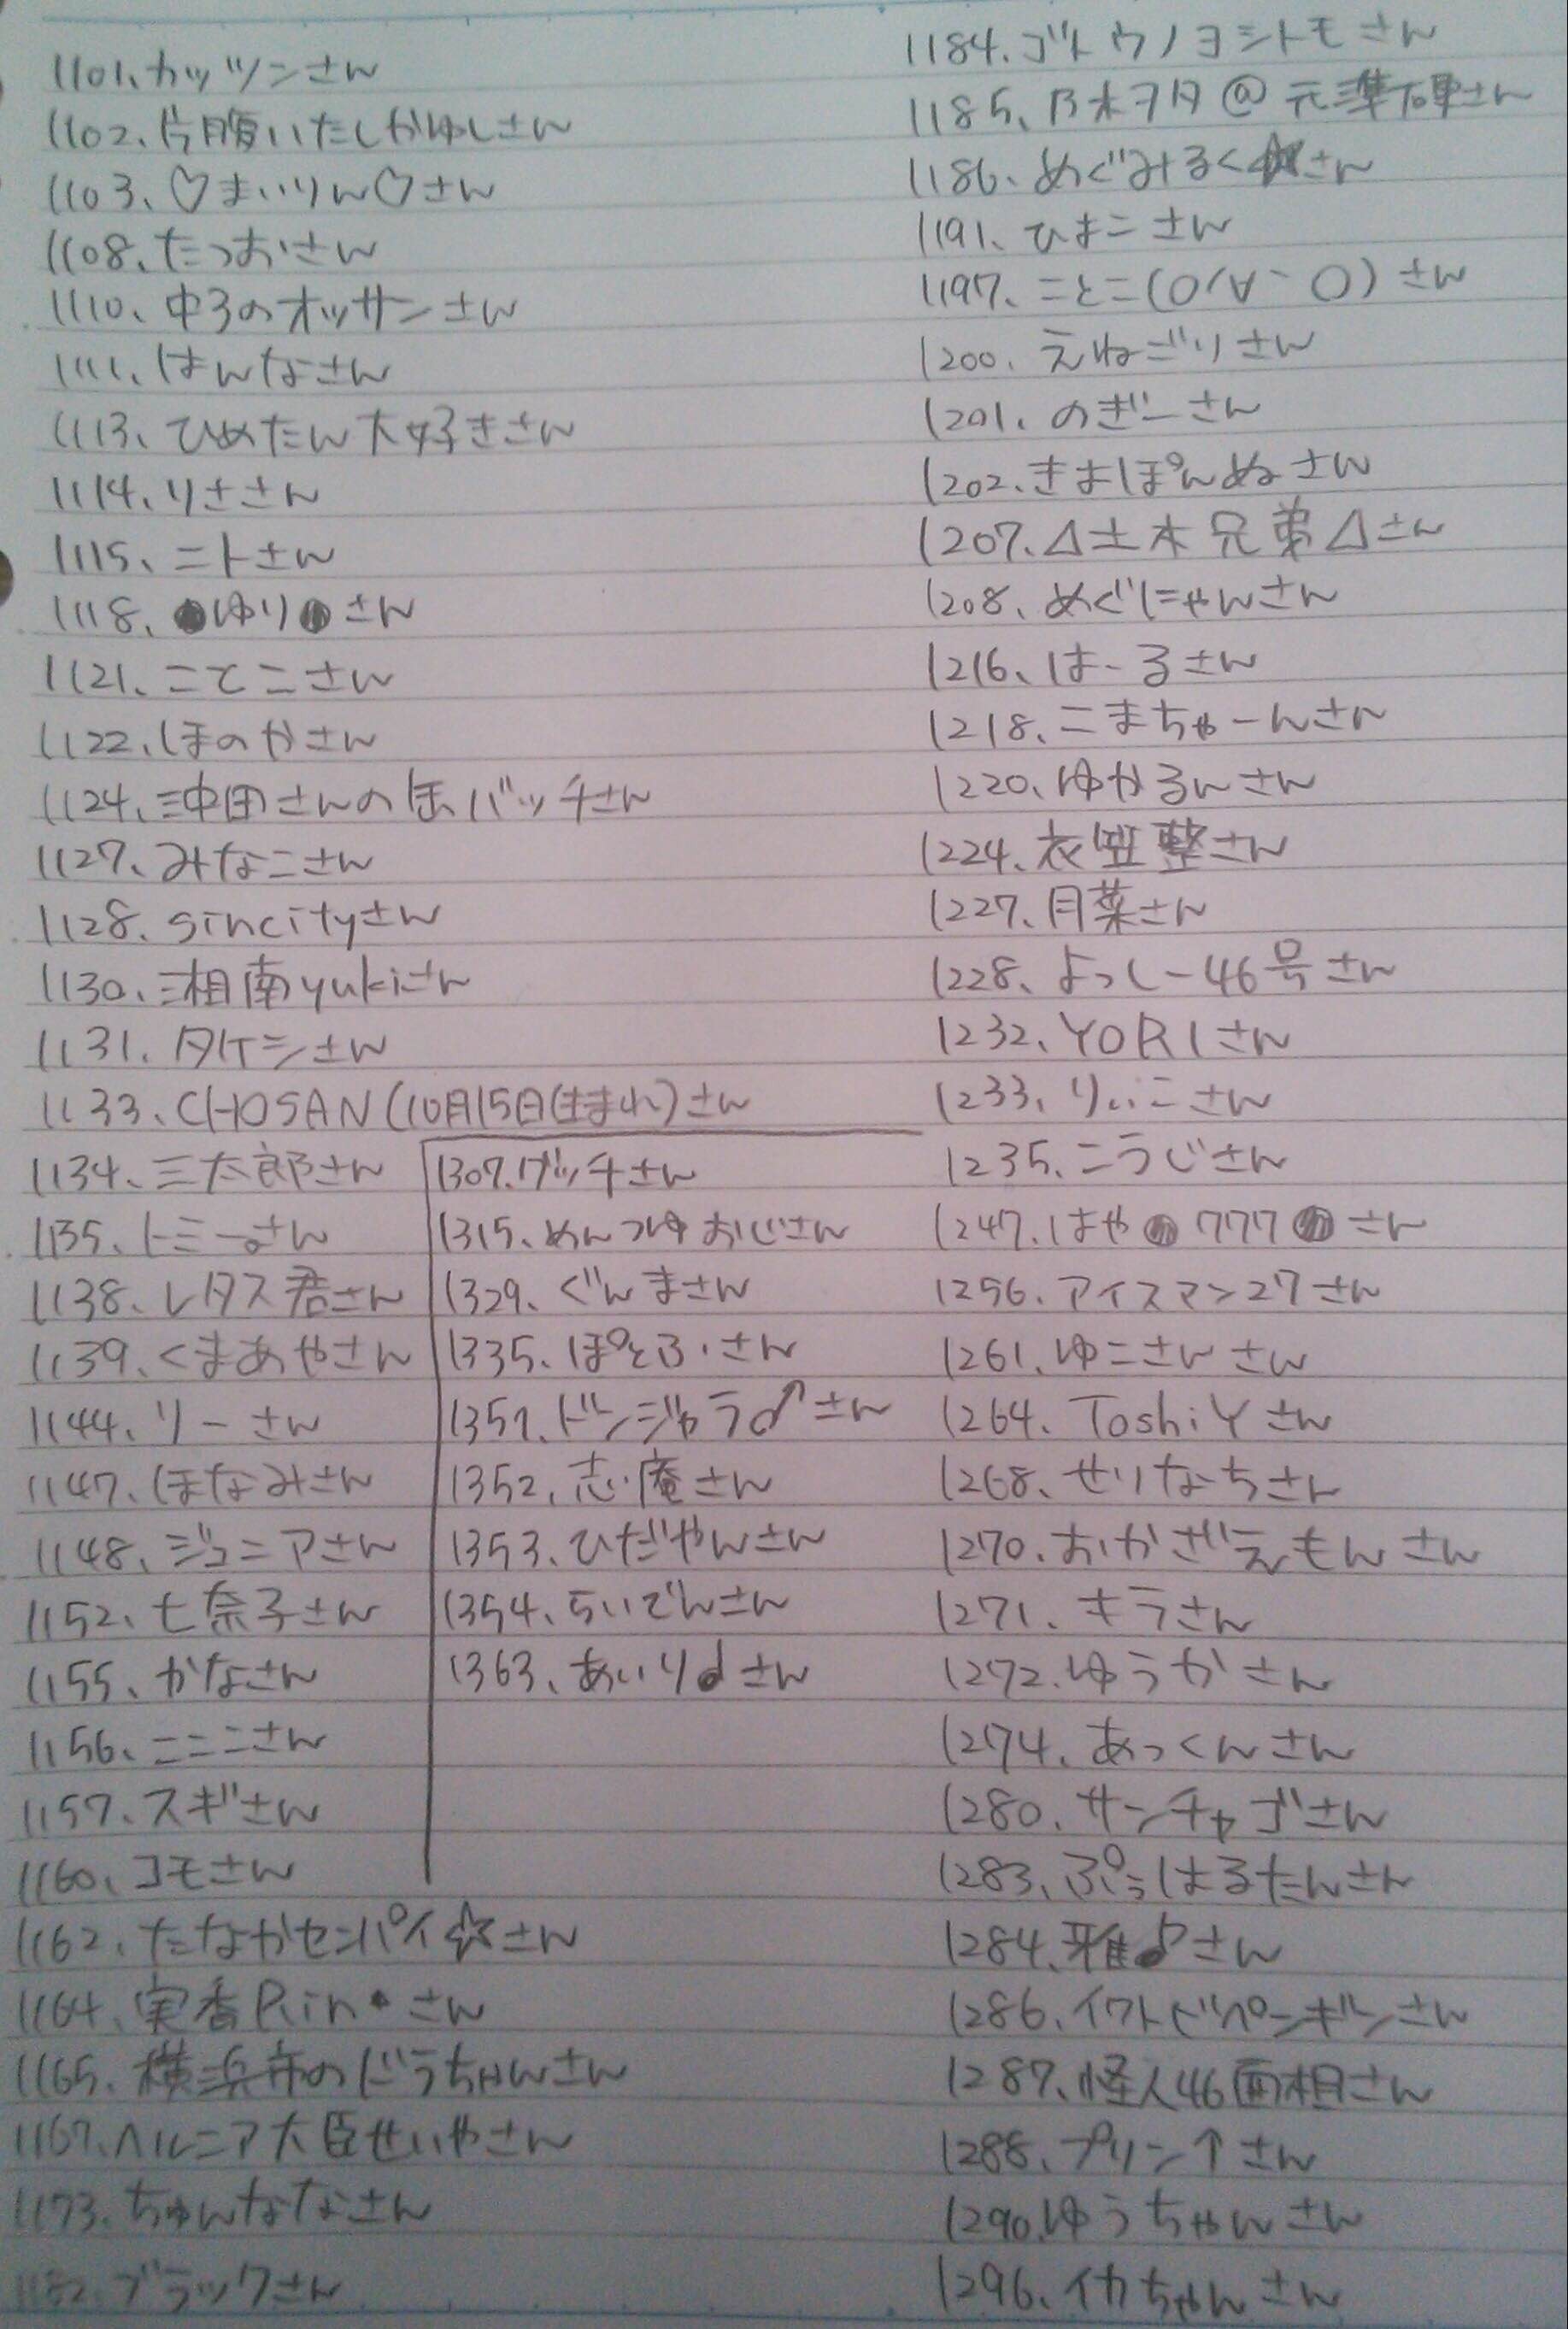 1101、カッツンさん
1102、片腹いたしかゆしさん
1103、♡まいりん♡さん
1108、たつおさん
1110、中3のオッサンさん
1111、はんなさん
1113、ひめたん大好きさん
1114、りささん
1115、ニトさん
1118、●ゆり●さん
1121、こてこさん
1122、ほのかさん
1124、沖田さんの缶バッチさん
1127、みなこさん
1128、sincityさん
1130、湘南yukiさん
1131、タケシさん
1133、CHOSAN(10月15日生まれ)さん
1134、三太郎さん
1135、トミーさん
1138、レタス君さん
1139、くまあやさん
1144、リーさん
1147、ほなみさん
1148、ジュニアさん
1152、七奈子さん
1155、かなさん
1156、こここさん
1157、スギさん
1160、コモさん
1162、たなかセンパイ☆さん
1164、実香Rin*さん
1165、横浜市のどうちゃんさん
1167、ヘルニア大臣せいやさん
1173、ちゅんななさん
1182、ブラックさん
1307、グッチさん
1315、めんつゆおじさん
1329、ぐんまさん
1335、ぽとふぃさん
1351、ドンジャラ♂さん
1352、志庵さん
1353、ひだやんさん
1354、らいでんさん
1363、あいり♩さん
1184、ゴトウノヨシトモさん
1185、乃木ヲタ@元準硬さん
1186、めぐみるく☆さん
1191、ひまこさん
1197、ことこ(O'∀`O)さん
1200、えねごりさん
1201、のぎーさん
1202、きまぽんぬさん
1207、△土木兄弟△さん
1208、めぐにゃんさん
1216、はーるさん
1218、こまちゃーんさん
1220、ゆかるんさん
1224、衣笠整さん
1227、月菜さん
1228、よっしー46号さん
1232、YORIさん
1233、りぃこさん
1235、こうじさん
1247、はや●777●さん
1256、アイスマン27さん
1261、ゆこさんさん
1264、ToshiYさん
1268、せりなちさん
1270、おかざえもんさん
1271、キラさん
1272、ゆうかさん
1274、あっくんさん
1280、サンチャゴさん
1283、ぷぅはるたんさん
1284、雅♪さん
1286、イワトビペンギンさん
1287、怪人46面相さん
1288、プリン↑さん
1290、ゆうちゃんさん
1296、イカちゃんさん